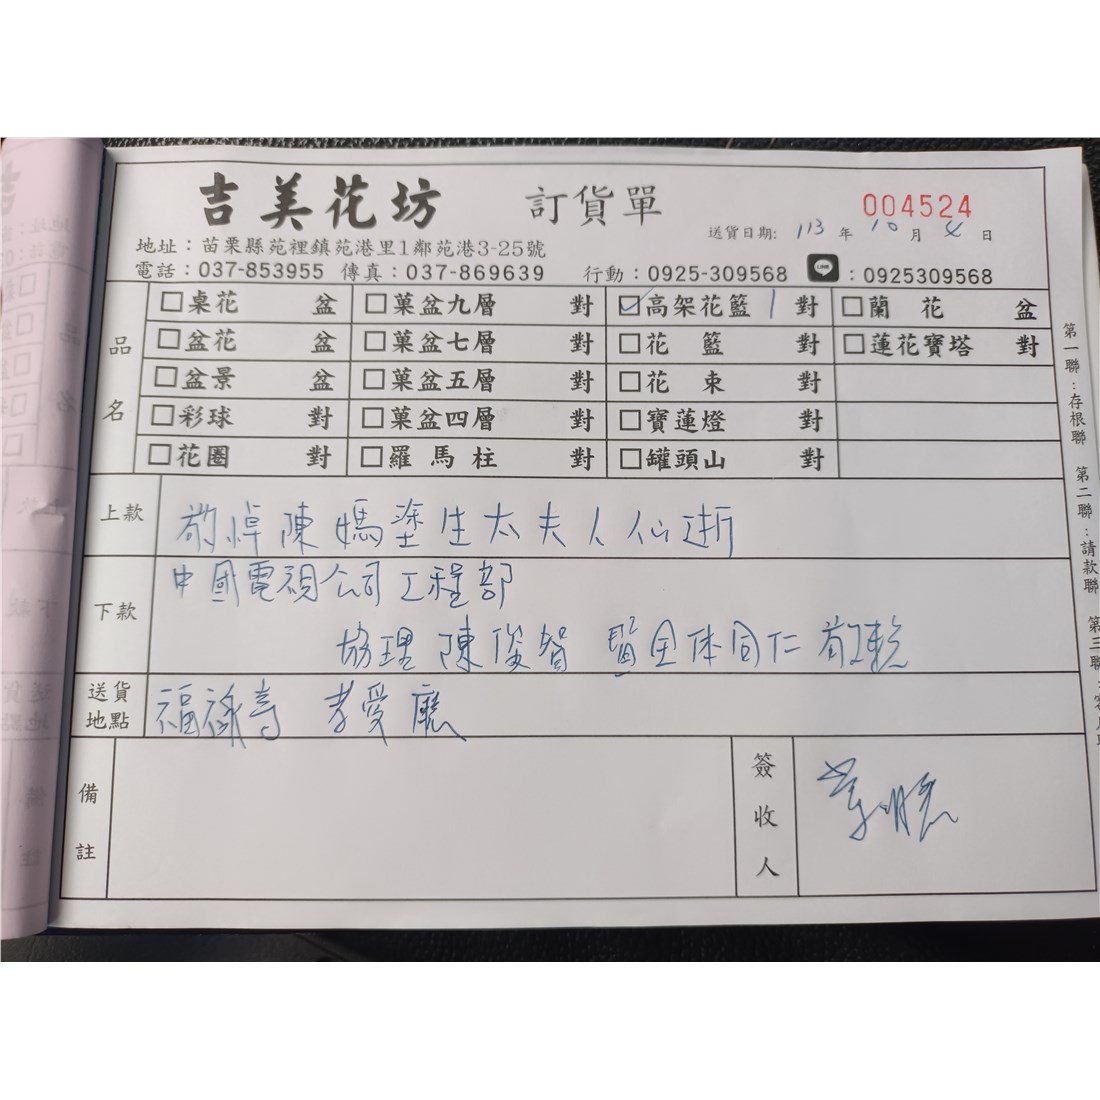 吉美花坊 訂貨單
004524
送貨日期: 113 年 10 月 4 日
地址：苗栗縣苑裡鎮苑港里1鄰苑港3-25號
電話：037-853955 傳真：037-869639 行動：0925-309568 LINE：0925309568
品名
□桌花 盆 □菓盆九層 對 ☑高架花籃 1 對 □蘭花 盆
□盆花 盆 □菓盆七層 對 □花籃 對 □蓮花寶塔 對
□盆景 盆 □菓盆五層 對 □花束 對
□彩球 對 □菓盆四層 對 □寶蓮燈 對
□花圈 對 □羅馬柱 對 □罐頭山 對
上款 敬悼陳媽塗生太夫人仙逝
下款 中國電視公司工程部
協理 陳俊智 暨全体同仁 敬輓
送貨地點 福祿壽 孝愛廳
備註
簽收人
第一聯：存根聯 第二聯：請款聯 第三聯：客戶聯